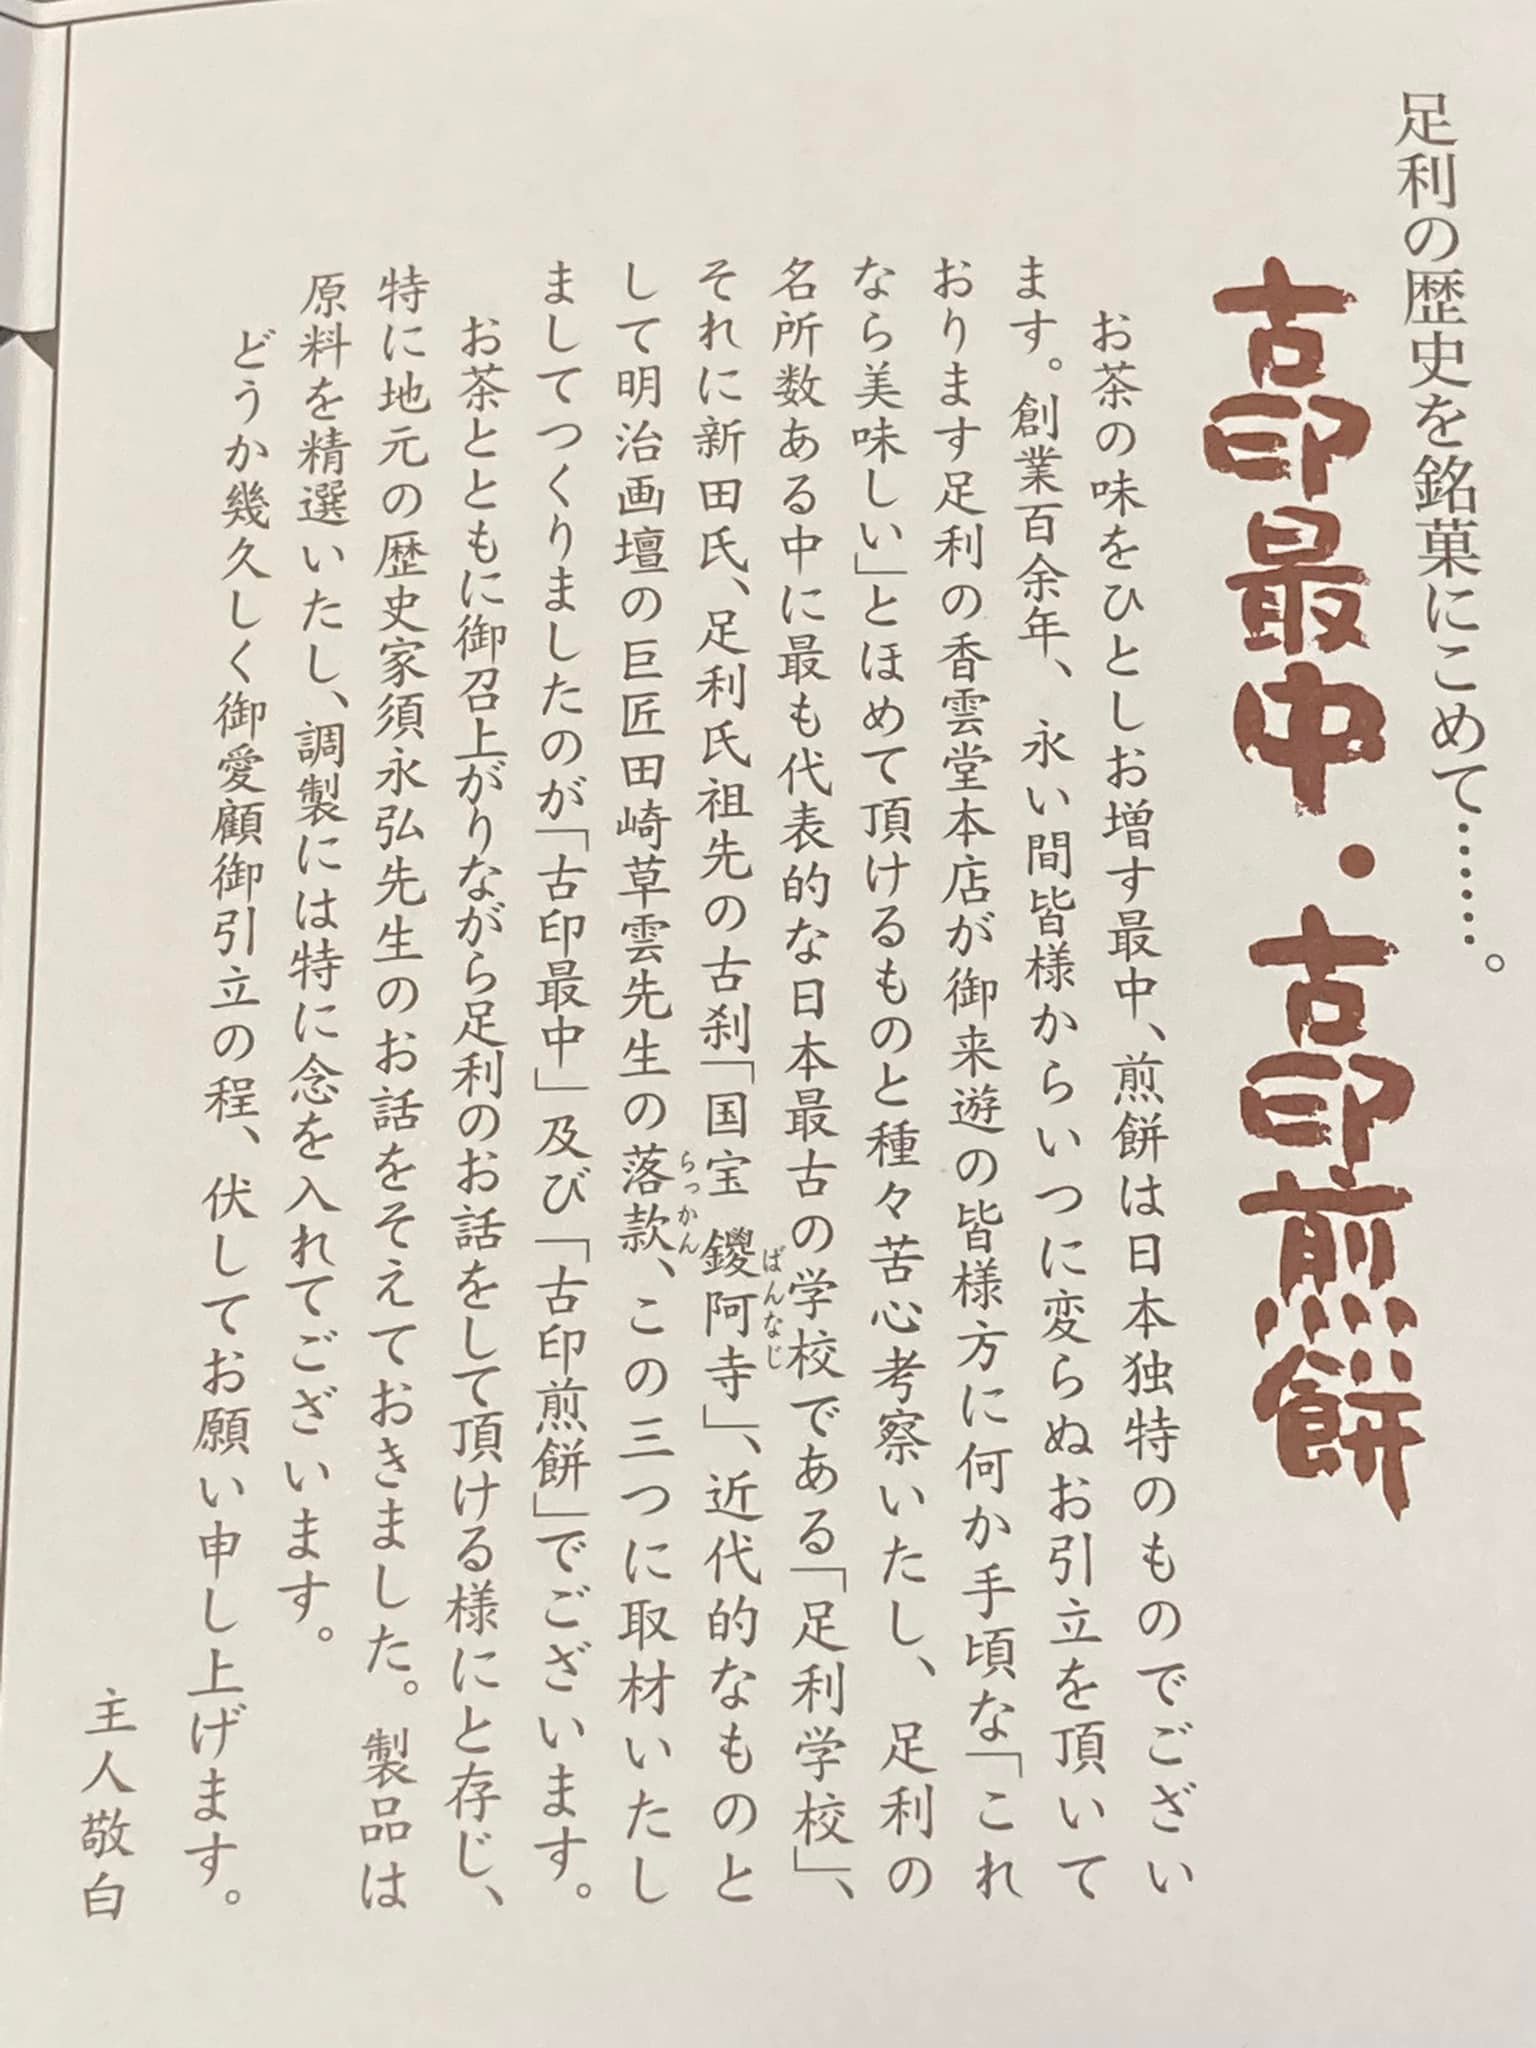 足利の歴史を銘菓にこめて……。
古印最中・古印煎餅
お茶の味をひとしお増す最中、煎餅は日本独特のものでござい
ます。創業百余年、永い間皆様からいつに変らぬお引立を頂いて
おります足利の香雲堂本店が御来遊の皆様方に何か手頃な「これ
なら美味しい」とほめて頂けるものと種々苦心考察いたし、足利の
名所数ある中に最も代表的な日本最古の学校である「足利学校」、
それに新田氏、足利氏祖先の古刹「国宝 鑁阿寺」、近代的なものと
ばんなじ
して明治画壇の巨匠田崎草雲先生の落款、この三つに取材いたし
らっかん
ましてつくりましたのが「古印最中」及び「古印煎餅」でございます。
お茶とともに御召上がりながら足利のお話をして頂ける様にと存じ、
特に地元の歴史家須永弘先生のお話をそえておきました。製品は
原料を精選いたし、調製には特に念を入れてございます。
どうか幾久しく御愛顧御引立の程、伏してお願い申し上げます。
主人敬白